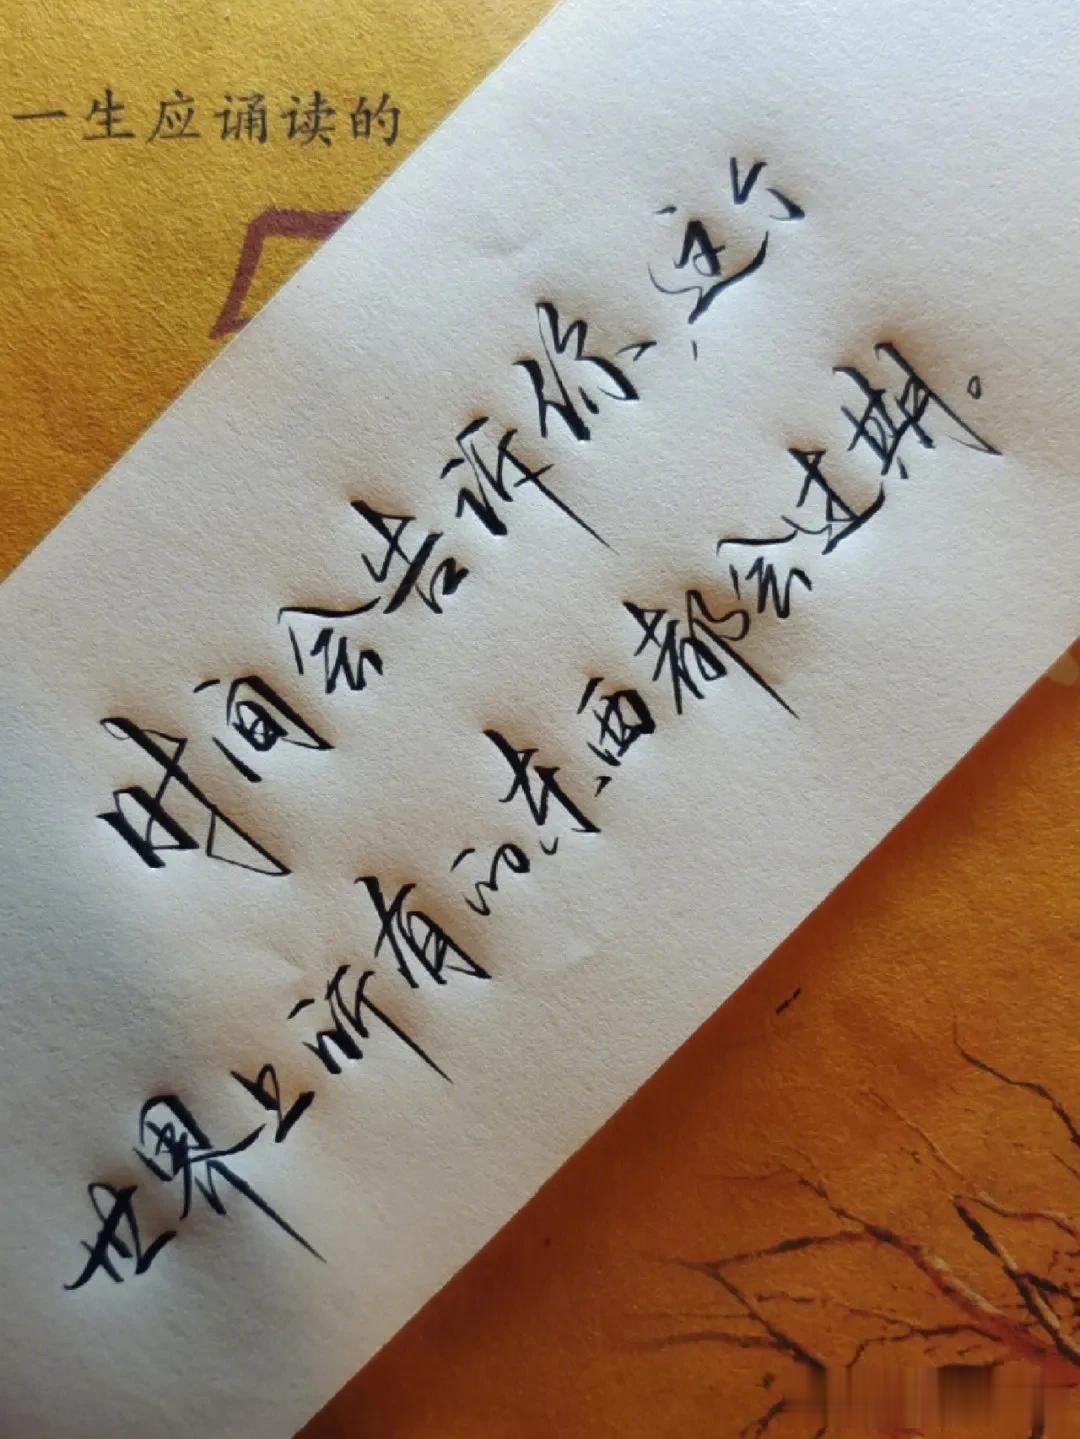 一生应诵读的
时间会告诉你,这个
世界上所有的东西都会过期。